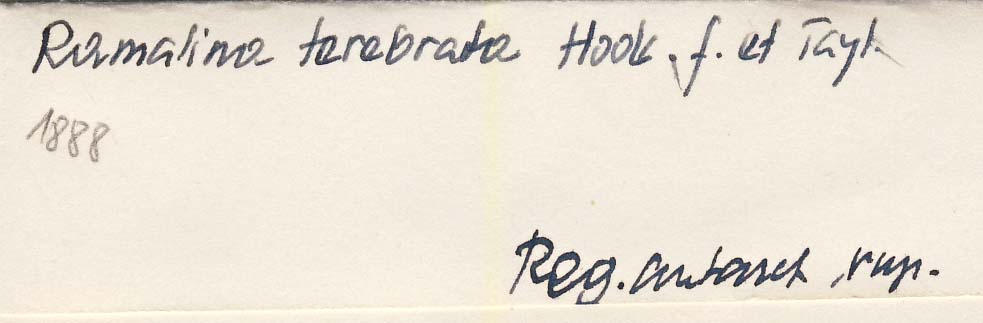 Ramalina terebrata Hook. f. et Tayl.
1888
Reg. antarct, rup.